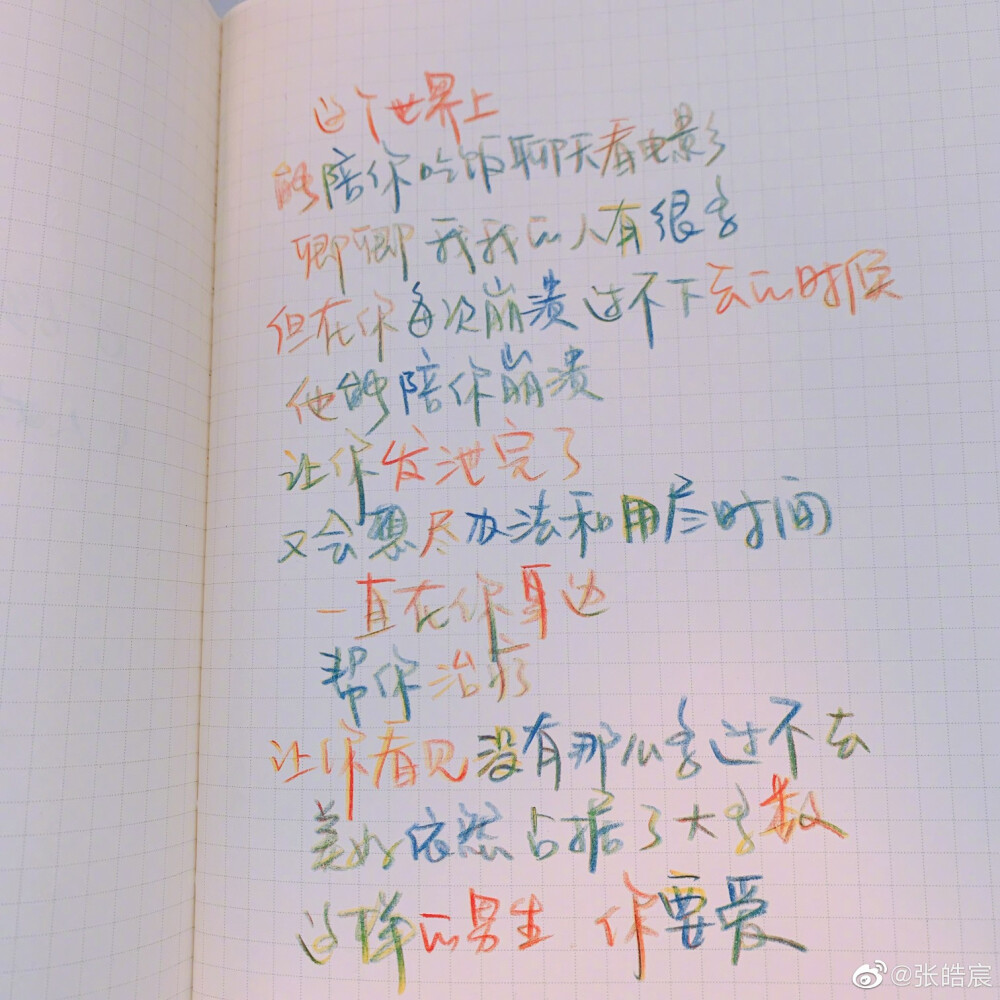 这个世界上
能陪你吃饭聊天看电影
卿卿我我的人有很多
但在你每次崩溃过不下去的时候
他能陪你崩溃
让你发泄完了
又会想尽办法和用尽时间
一直在你身边
帮你治疗
让你看见没有那么多过不去
美好依然占据了大多数
这样的男生 你要爱
@张皓宸